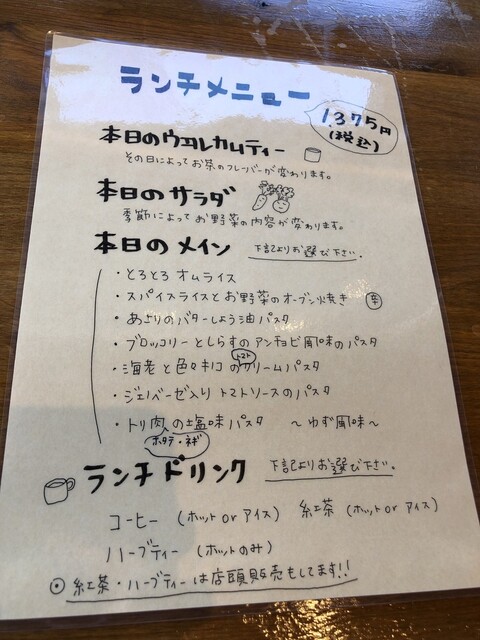 ランチメニュー
1,375円
(税込)
本日のウエルカムティー
その日によってお茶のフレーバーが変わります。
本日のサラダ
季節によってお野菜の内容が変わります。
本日のメイン 下記よりお選び下さい。
・とろとろ オムライス
・スパイスライスとお野菜のオーブン焼き 辛
・あさりのバターしょう油パスタ
・ブロッコリーとしらすのアンチョビ風味のパスタ
・海老と色々キノコのトマトクリームパスタ
・ジェノベーゼ入り トマトソースのパスタ
・トリ肉の塩味パスタ ～ゆず風味～
ホタテ・ネギ
ランチドリンク 下記よりお選び下さい。
コーヒー (ホット or アイス) 紅茶 (ホット or アイス)
ハーブティー (ホットのみ)
紅茶・ハーブティーは店頭販売もしてます!!